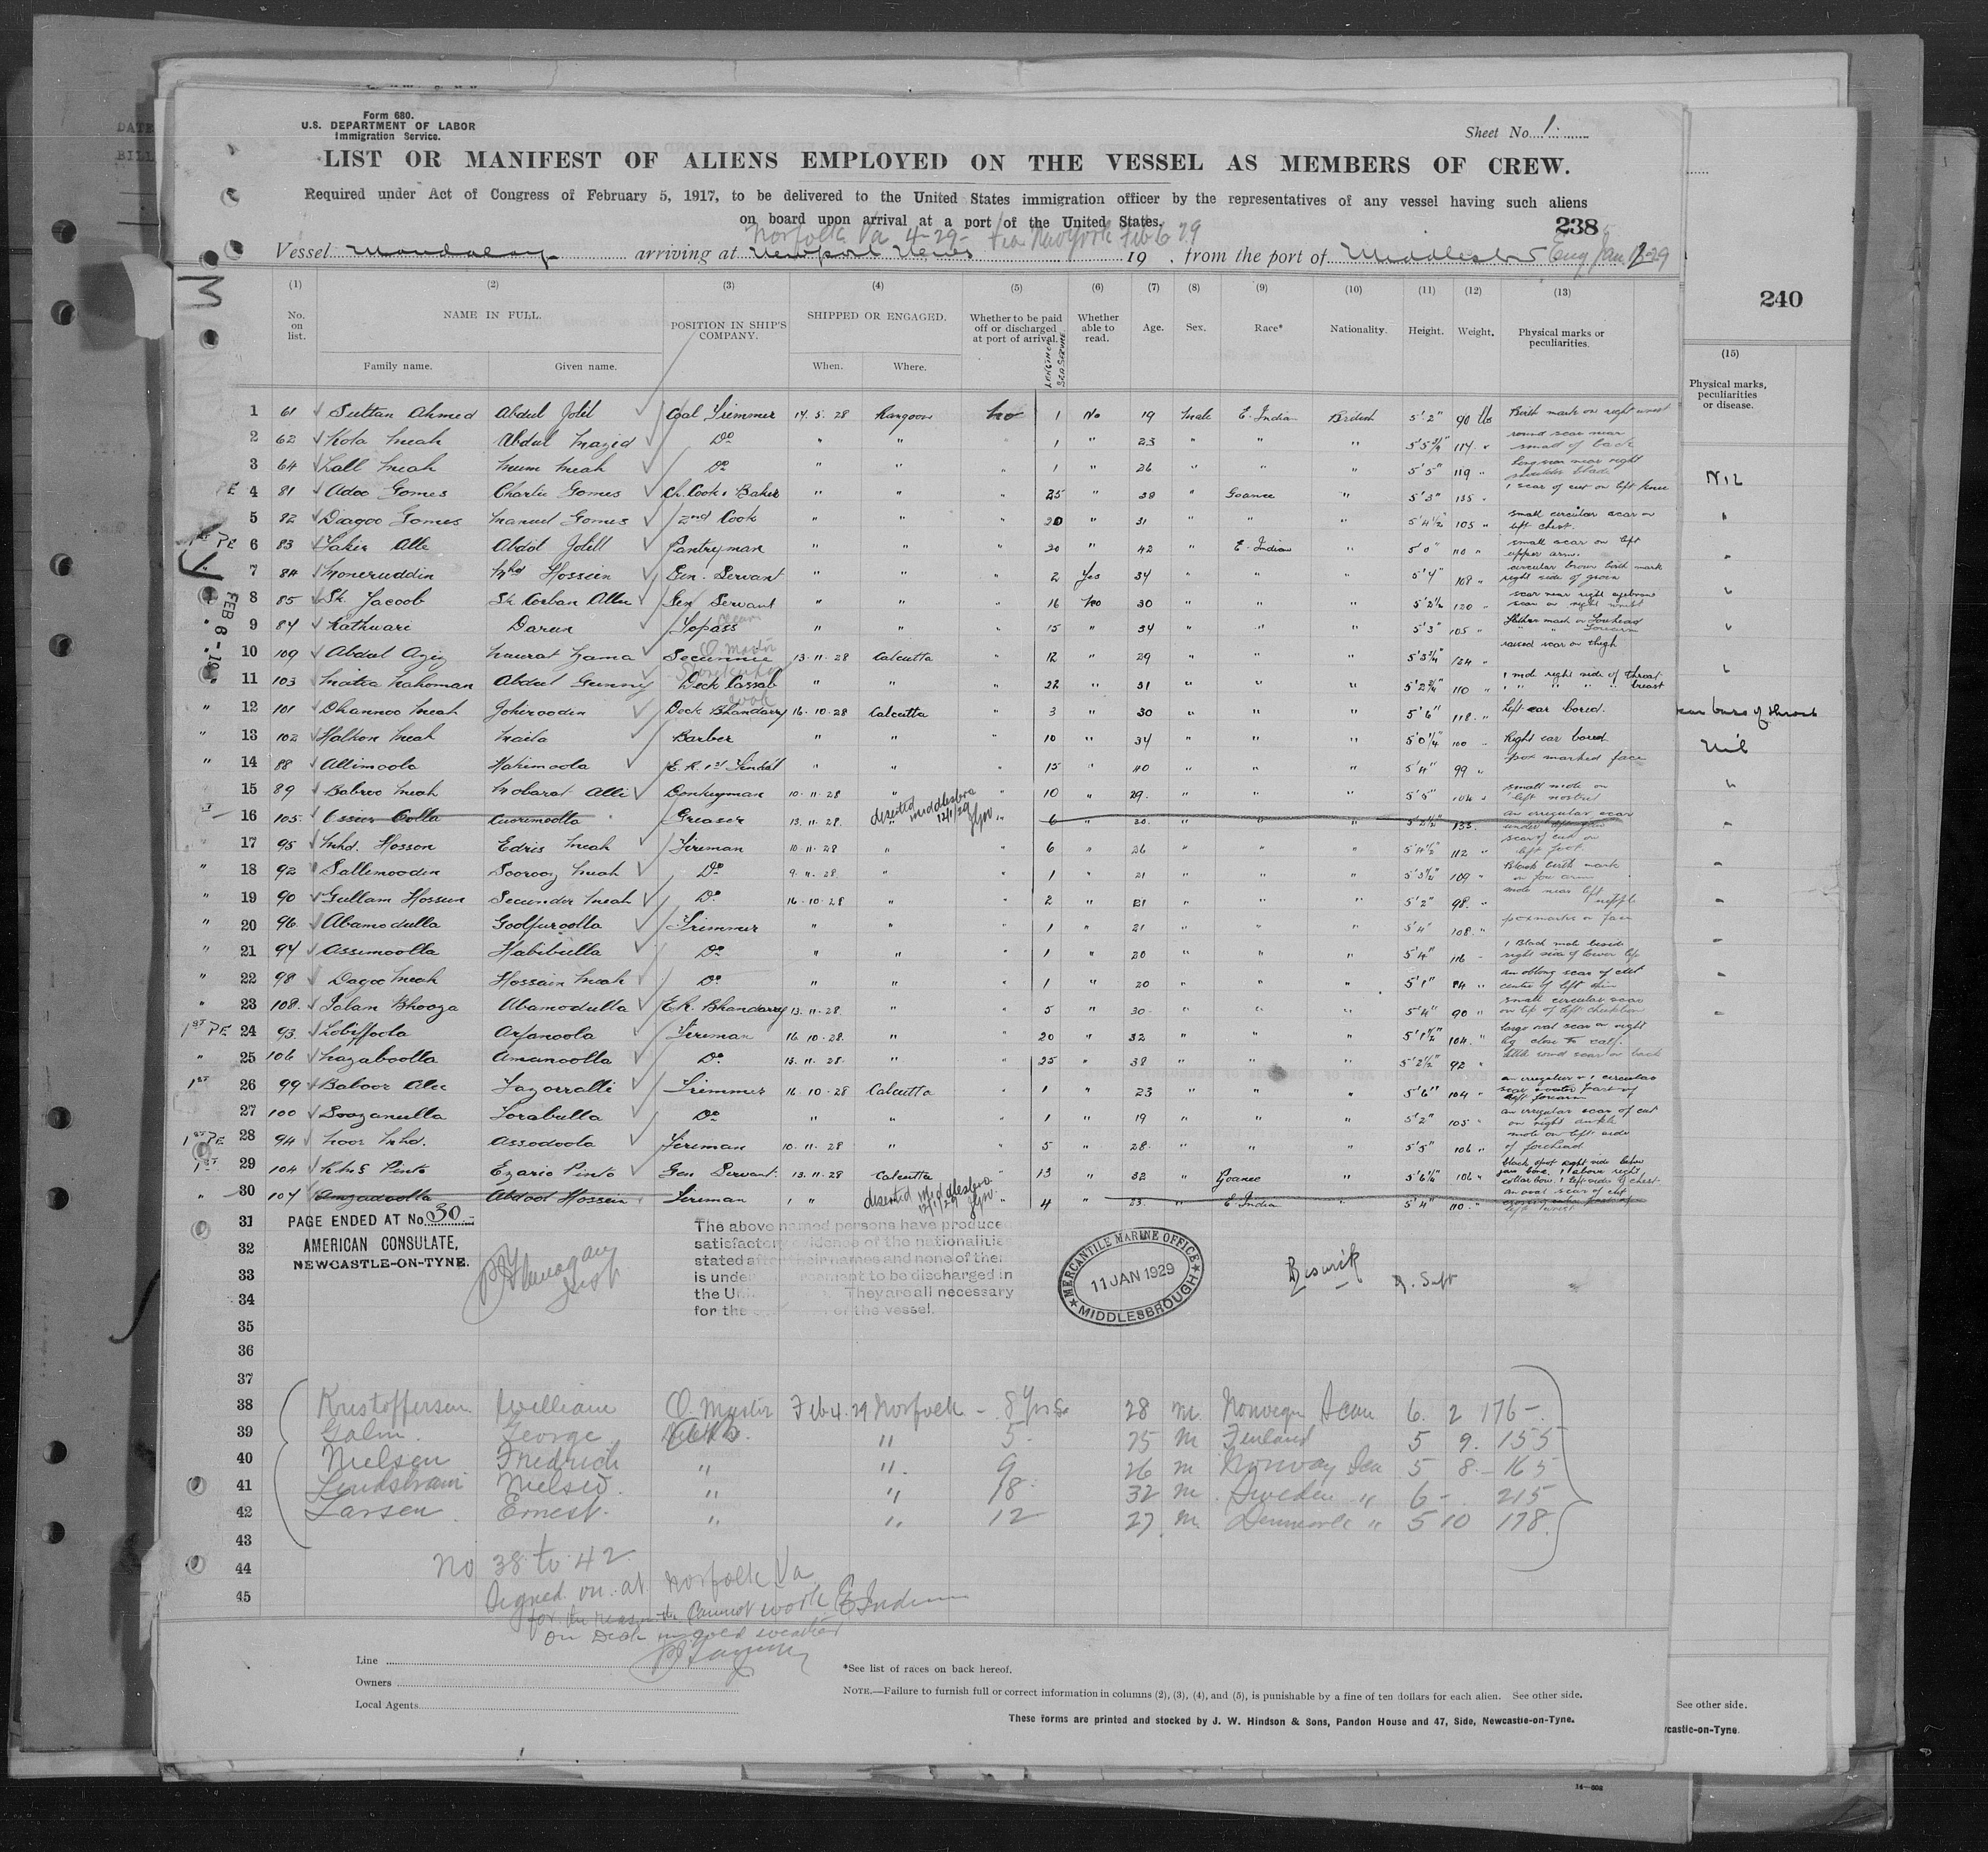 Form 680.
U.S. DEPARTMENT OF LABOR
Immigration Service.
Sheet No. 1
LIST OR MANIFEST OF ALIENS EMPLOYED ON THE VESSEL AS MEMBERS OF CREW.
Required under Act of Congress of February 5, 1917, to be delivered to the United States immigration officer by the representatives of any vessel having such aliens
on board upon arrival at a port of the United States.
238
Norfolk Va 4-29- via New York Feb 6 29
Vessel Mandalay arriving at Newport News 19 , from the port of Middlesbro Eng Jan 29
240
(1) (2) (3) (4) (5) (6) (7) (8) (9) (10) (11) (12) (13)
No. on list. NAME IN FULL. POSITION IN SHIP'S COMPANY. SHIPPED OR ENGAGED. Whether to be paid off or discharged at port of arrival. LENGTH OF SEA SERVICE Whether able to read. Age. Sex. Race* Nationality. Height. Weight. Physical marks or peculiarities.
Family name. Given name. When. Where.
(15)
Physical marks, peculiarities or disease.
1 61 Sultan Ahmed Abdul Jolil Coal Trimmer 14.5.28 Rangoon No 1 No 19 Male E. Indian British 5'2" 90 lbs Birth mark on right wrist
2 62 Kola Meah Abdul Mazid Do " " 1 " 23 " " " 5'5¾" 114 " round scar near small of back
3 64 Lall Meah Do " " " 1 " 26 " " " 5'5" 119 " long scar near right shoulder blade
4 81 Adoo Gomes Charlie Gomes Ch. Cook & Baker " " " 25 " 38 " Goanee " 5'3" 135 " 1 scar of cut on left knee
Nil
5 82 Diagoo Gomes Manuel Gomes 2nd Cook " " " 20 " 31 " " " 5'4½" 105 " small circular scar on left chest.
6 83 Alle Abdol Jolill Pantryman " " " 20 " 42 " E. Indian " 5'0" 110 " small scar on left upper arm.
7 84 Moneruddin Mhd Hossein Gen. Servant " " " 2 Yes 34 " " " 5'4" 108 " circular brown birth mark right side of groin
8 85 Sk. Jacoob Sk Corban Allee Gen Servant " " " 16 No 30 " " " 5'2½ 120 " scar near right eyebrow scar on right wrist
9 Kathwari Topass " " " 15 " 34 " " " 5'3" 105 "
10 109 Abdul Aziz Secunnie 13.11.28 Calcutta " 12 " 29 " " " 5'3¾" 124 " raised scar on thigh
11 103 Abdul Gunny Deck Cassab " " " 22 " 31 " " " 5'2¾" 110 " 1 mole right side of throat " " " " " breast
12 101 Dhannoo Meah Johirooden Deck Bhandarry 16.10.28 Calcutta " 3 " 30 " " " 5'6" 118 " Left ear bored.
13 102 Maila Barber " " " 10 " 34 " " " 5'0¼" 100 " Right ear bored
Nil
14 88 Allimoola Hakimoola E.R. 1st Tindal " " " 15 " 40 " " " 5'4" 99 " pox marked face
15 89 Babroo Meah Mobarat Alli Donkeyman 10.11.28 " " 10 " 29 " " " 5'5" 104 " small mole on left nostril
16 105 Greaser 13.11.28 deserted Middlesbro 12/1/29 " 6 " 30 " " " 5'2½" 133 " an irregular scar
17 95 Mhd. Hosson Edris Meah Fireman 10.11.28 " " 6 " 26 " " " 5'4½" 112 " scar of cut on left foot.
18 92 Sallemooden Soorooz Meah Do 9.11.28 " " 1 " 21 " " " 5'3½" 109 " Black birth mark on fore arm
19 90 Gullam Hossein Secunder Meah Do 16.10.28 " " 2 " 21 " " " 5'2" 98 " mole near left nipple
20 96 Abamodulla Goolfuroolla Trimmer " " " 1 " 21 " " " 5'4" 108 " poxmarks on face
21 97 Assimoolla Habibulla Do " " " 1 " 20 " " " 5'4" 116 " 1 Black mole beside right side of lower lip
22 98 Dagoo Meah Hossain Meah Do " " " 1 " 20 " " " 5'1" 84 " an oblong scar of cut centre of left shin
23 108 Islam Bhooza Abamodulla E.R. Bhandarry 13.11.28 " " 5 " 30 " " " 5'4" 90 " small circular scar on tip of left cheekbone
24 93 Arfanoola Fireman 16.10.28 " " 20 " 32 " " " 5'1½" 104 " large oval scar on right leg close to calf.
25 106 Amanoolla Do 13.11.28 " " 25 " 38 " " " 5'2½" 92 "
26 99 Baboor Alee Trimmer 16.10.28 Calcutta " 1 " 23 " " " 5'6" 104 "
27 100 Torabulla Do " " " 1 " 19 " " " 5'2" 105 " an irregular scar of cut on right ankle
28 94 Noor Mhd. Assodoola Fireman 10.11.28 " " 5 " 28 " " " 5'5" 106 " mole on left side of forehead
29 104 Pinto Ezario Pinto Gen Servant 13.11.28 Calcutta " 13 " 32 " Goanee " 5'6¼" 106 "
30 107 Abdool Hossein Fireman " " deserted Middlesbro 12/1/29 " 4 " 23 " E. Indian " 5'4" 110 "
31 PAGE ENDED AT No. 30
32 AMERICAN CONSULATE,
33 NEWCASTLE-ON-TYNE.
34
35
36
37
The above named persons have produced
satisfactory evidence of the nationalities
stated after their names and none of them
is under agreement to be discharged in
the U. They are all necessary
for the of the vessel.
MERCANTILE MARINE OFFICE
11 JAN 1929
MIDDLESBROUGH
Beswick
38 Kristoffersen William Q. Master Feb 4. 29 Norfolk - 8 yrs 28 m. Norwegn Scan 6. 2 176-
39 Galm George " 5- 25 m Finland 5 9. 155
40 Nielsen Fredrich " " 9 26 m Norway Scan 5 8.- 165
41 Lindstrom " " 18 32 m Sweden " 6 -. 215
42 Larsen Ernest. " " 12 27 m. Denmark " 5 10 178.
43
44
45
No 38 to 42
Signed on at Norfolk Va
for the reason the cannot work E Indian
on Deck in cold weather
Line
Owners
Local Agents
*See list of races on back hereof.
NOTE.—Failure to furnish full or correct information in columns (2), (3), (4), and (5), is punishable by a fine of ten dollars for each alien. See other side.
These forms are printed and stocked by J. W. Hindson & Sons, Pandon House and 47, Side, Newcastle-on-Tyne.
See other side.
castle-on-Tyne.